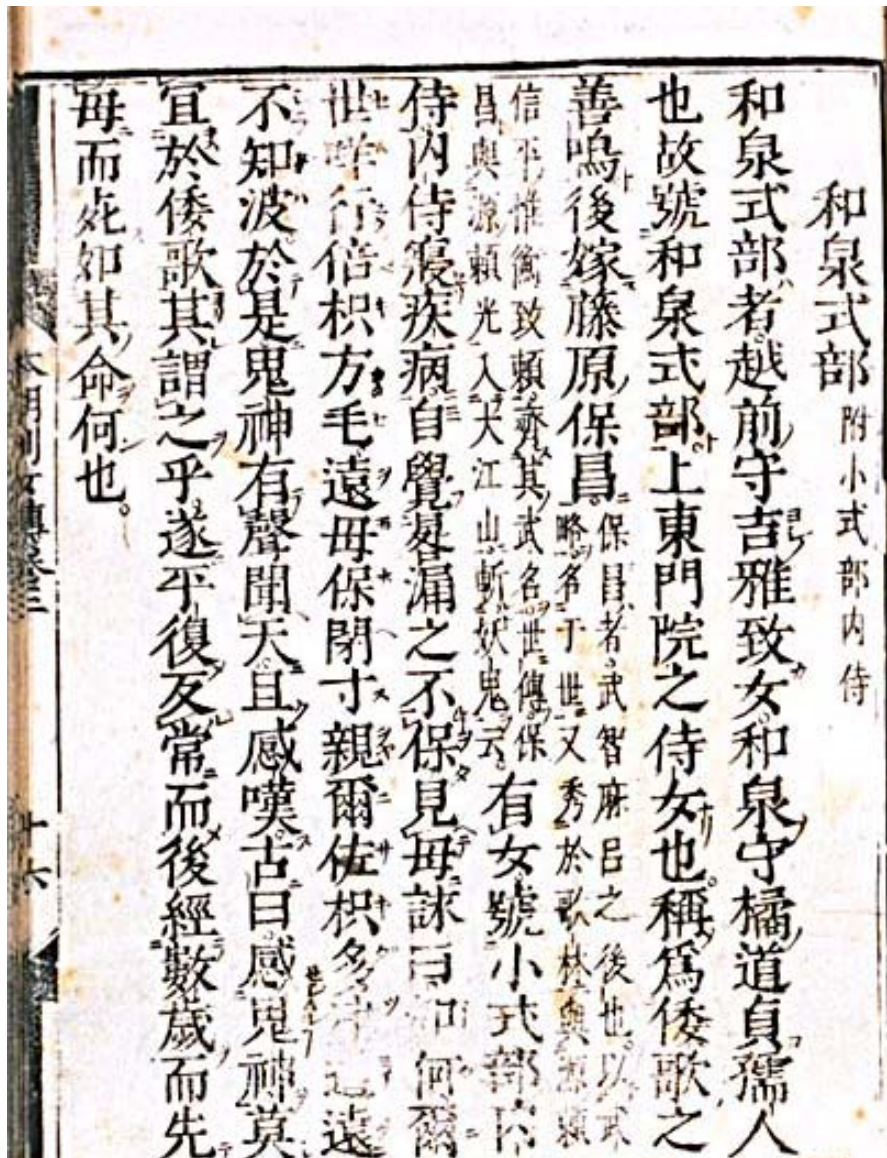 和泉式部 附小式部内侍
和泉式部者越前守吉雅致女和泉守橘道貞孺人
也故號和泉式部上東門院之侍女也稱爲倭歌之
善鳴後嫁藤原保昌 保昌者武智麻呂之後也以武
略名于世又秀於歌林與源頼
信平惟衡致頼齊其武名世傳保
昌與源頼光入大江山斬妖鬼云 有女號小式部内
侍内侍寢疾病自覺晷漏之不保見母詠曰 何爾
世 行倍枳方毛遠母保閉寸親爾佐枳多 遠
不知波於是鬼神有聲聞天且感嘆古曰感鬼神莫
宜於倭歌其謂之乎遂平復反常而後經數歲而先
母而死如其命何也。
本朝列女傳卷三
十六